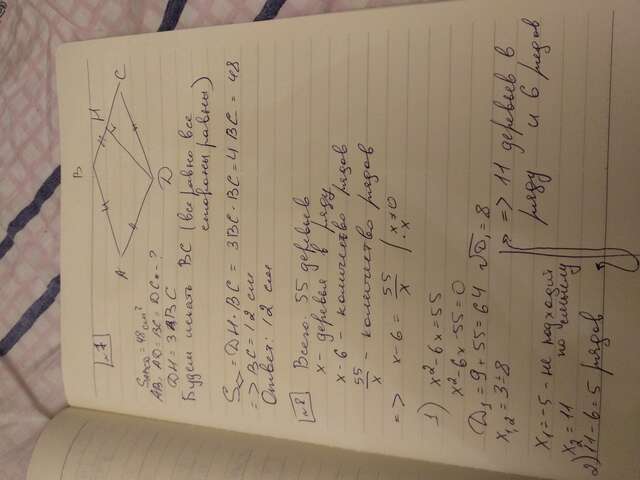 №7
B
H
C
A
D
S_ABCD = 48 см²
AB=AD=BC=DC - ?
DH = 3 BC
Будем искать BC (все равно все
стороны равны)
S = DH · BC = 3BC · BC = 4BC = 48
=> BC = 12 см
Ответ: 12 см
№8
Всего: 55 деревьев
x - деревья в ряду
x-6 - количество рядов
55/x - количество рядов
=> x-6 = 55/x | · x≠0
1) x²-6x=55
x²-6x-55=0
D₁=9+55=64 √D₁=8
x₁,₂=3±8
x₁=-5 - не подходит
по смыслу
x₂=11
2) 11-6=5 рядов
=> 11 деревьев в
ряду и 6 рядов